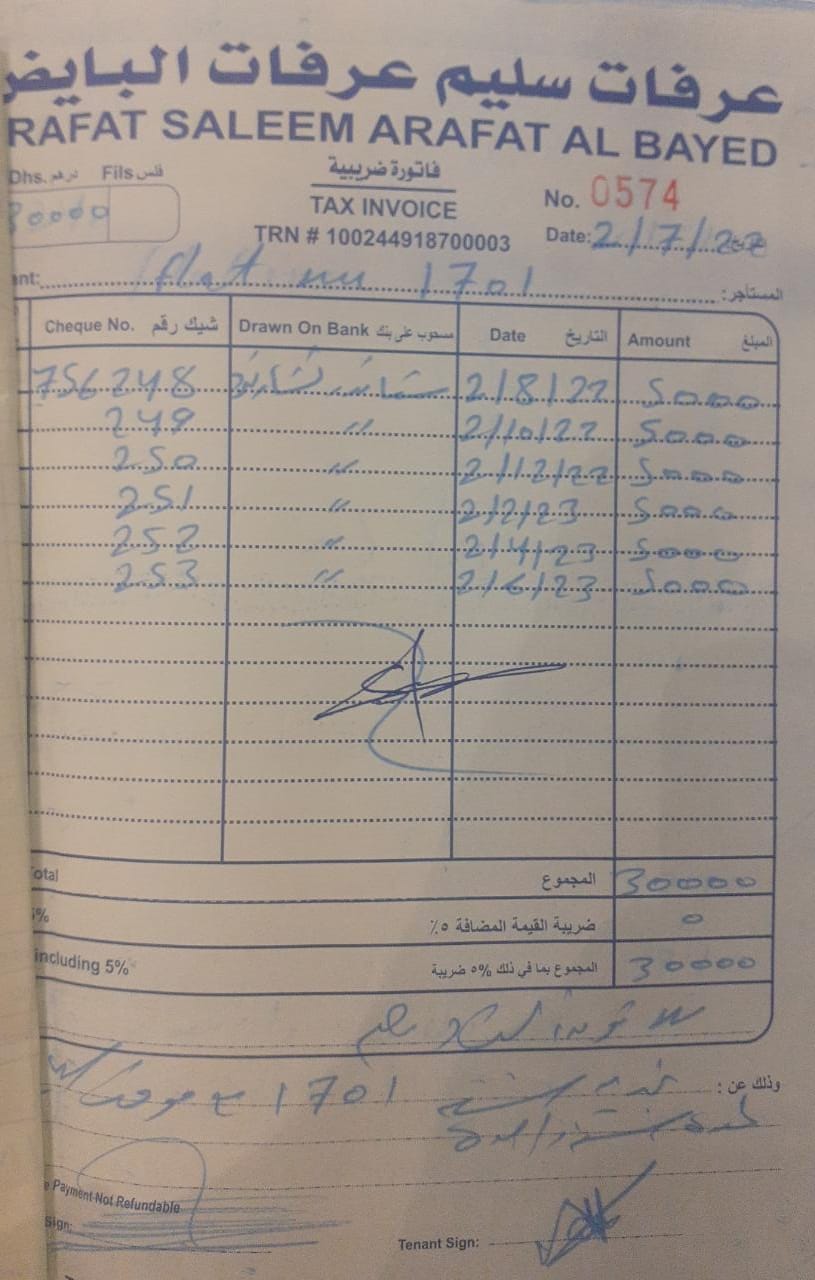 عرفات سليم عرفات البايض
RAFAT SALEEM ARAFAT AL BAYED
Dhs. درهم Fils فلس
فاتورة ضريبية
TAX INVOICE
TRN # 100244918700003
No. 0574
Date: 2/7/22
0000
flat 1701 المستأجر:
Cheque No. شيك رقم Drawn On Bank مسحوب على بنك Date التاريخ Amount المبلغ
756248 2/8/22 5000
249 " 2/10/22 5000
250 " 2/12/22 5000
251 " 2/2/23 5000
252 " 2/4/23 5000
253 " 2/6/23 5000
otal المجموع 30000
% ضريبة القيمة المضافة ٥٪ 0
including 5% المجموع بما في ذلك ٥% ضريبة 30000
وذلك عن: 1701
Payment Not Refundable
Sign:
Tenant Sign: